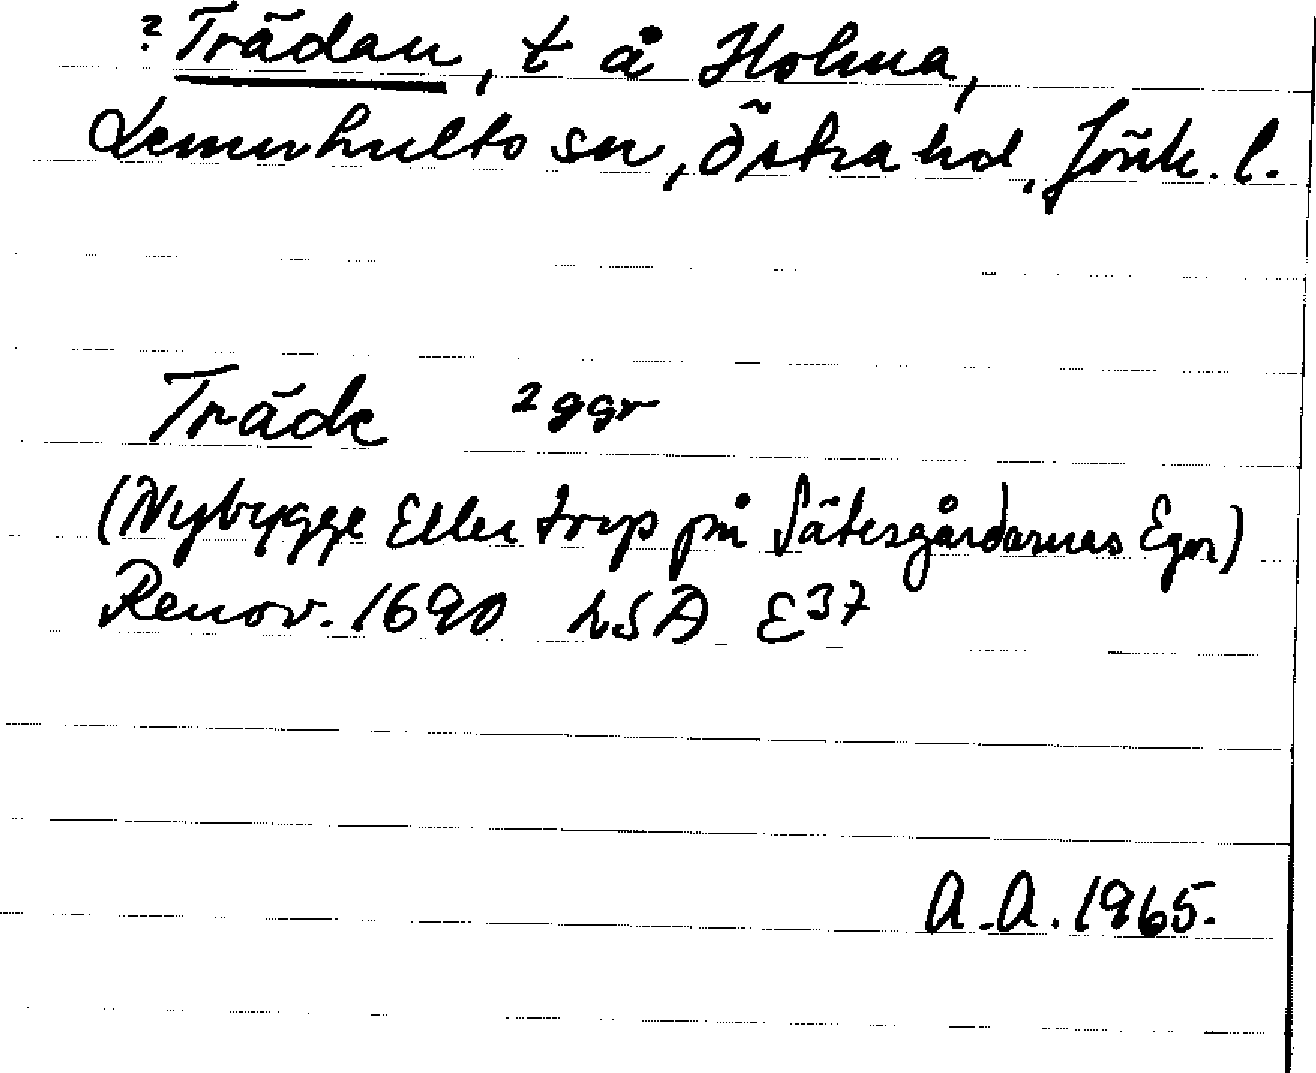 ? Trädan, t å Holma,
Lemnhults sn, Östra hd, Jönk. l.
Träde 2 ggr
(Nybygge Eller torp på Sätesgårdarnas Egor)
Renov. 1690 LSA E37
A.A. 1965.